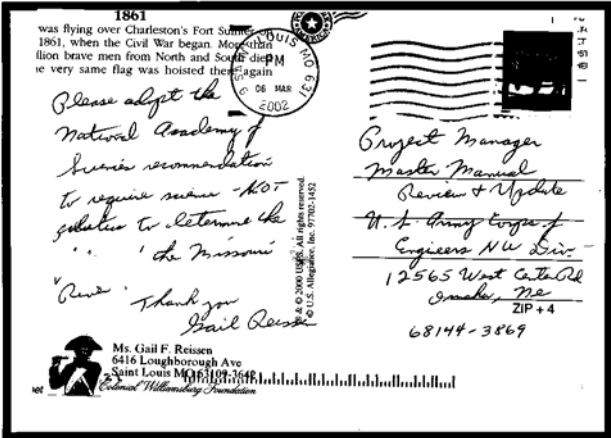 1861
was flying over Charleston's Fort Sumter on
1861, when the Civil War began. More than
llion brave men from North and South died
he very same flag was hoisted there again
SAINT LOUIS MO 631
PM
06 MAR
2002
AMERICA
Please adopt the
National Academy of
Sciences recommendation
to require science - NOT
politics to determine the
the Missouri
River
Thank you
Gail Reissen
® & © 2000 USPS. All rights reserved.
© U.S. Allegiance, Inc. 97702-1452
Project Manager
Master Manual
Review & Update
U.S. Army Corps of
Engineers NW Div.
12565 West Center Rd
Omaha, Ne
ZIP + 4
68144-3869
Ms. Gail F. Reissen
6416 Loughborough Ave
Saint Louis MO 63109-3642
Colonial Williamsburg Foundation